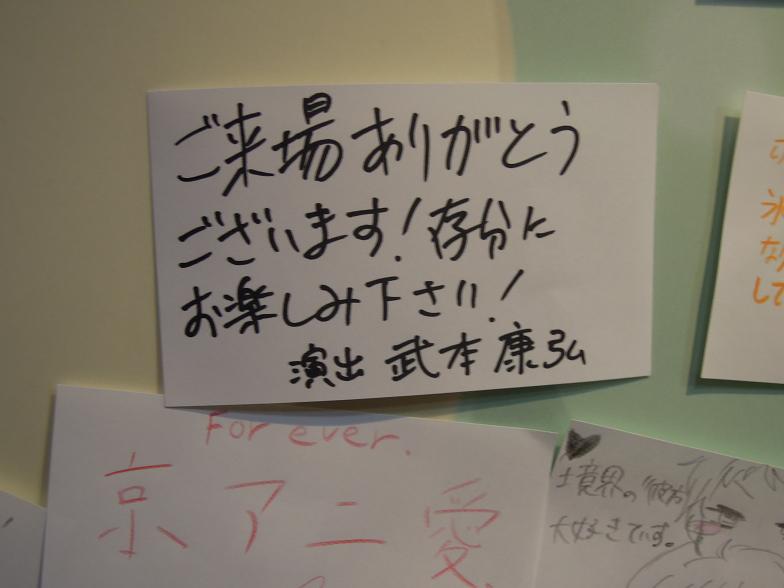 ご来場ありがとう
ございます!存分に
お楽しみ下さい!
演出 武本康弘
For ever.
京アニ愛
境界の彼方
大好きです。
氷
して